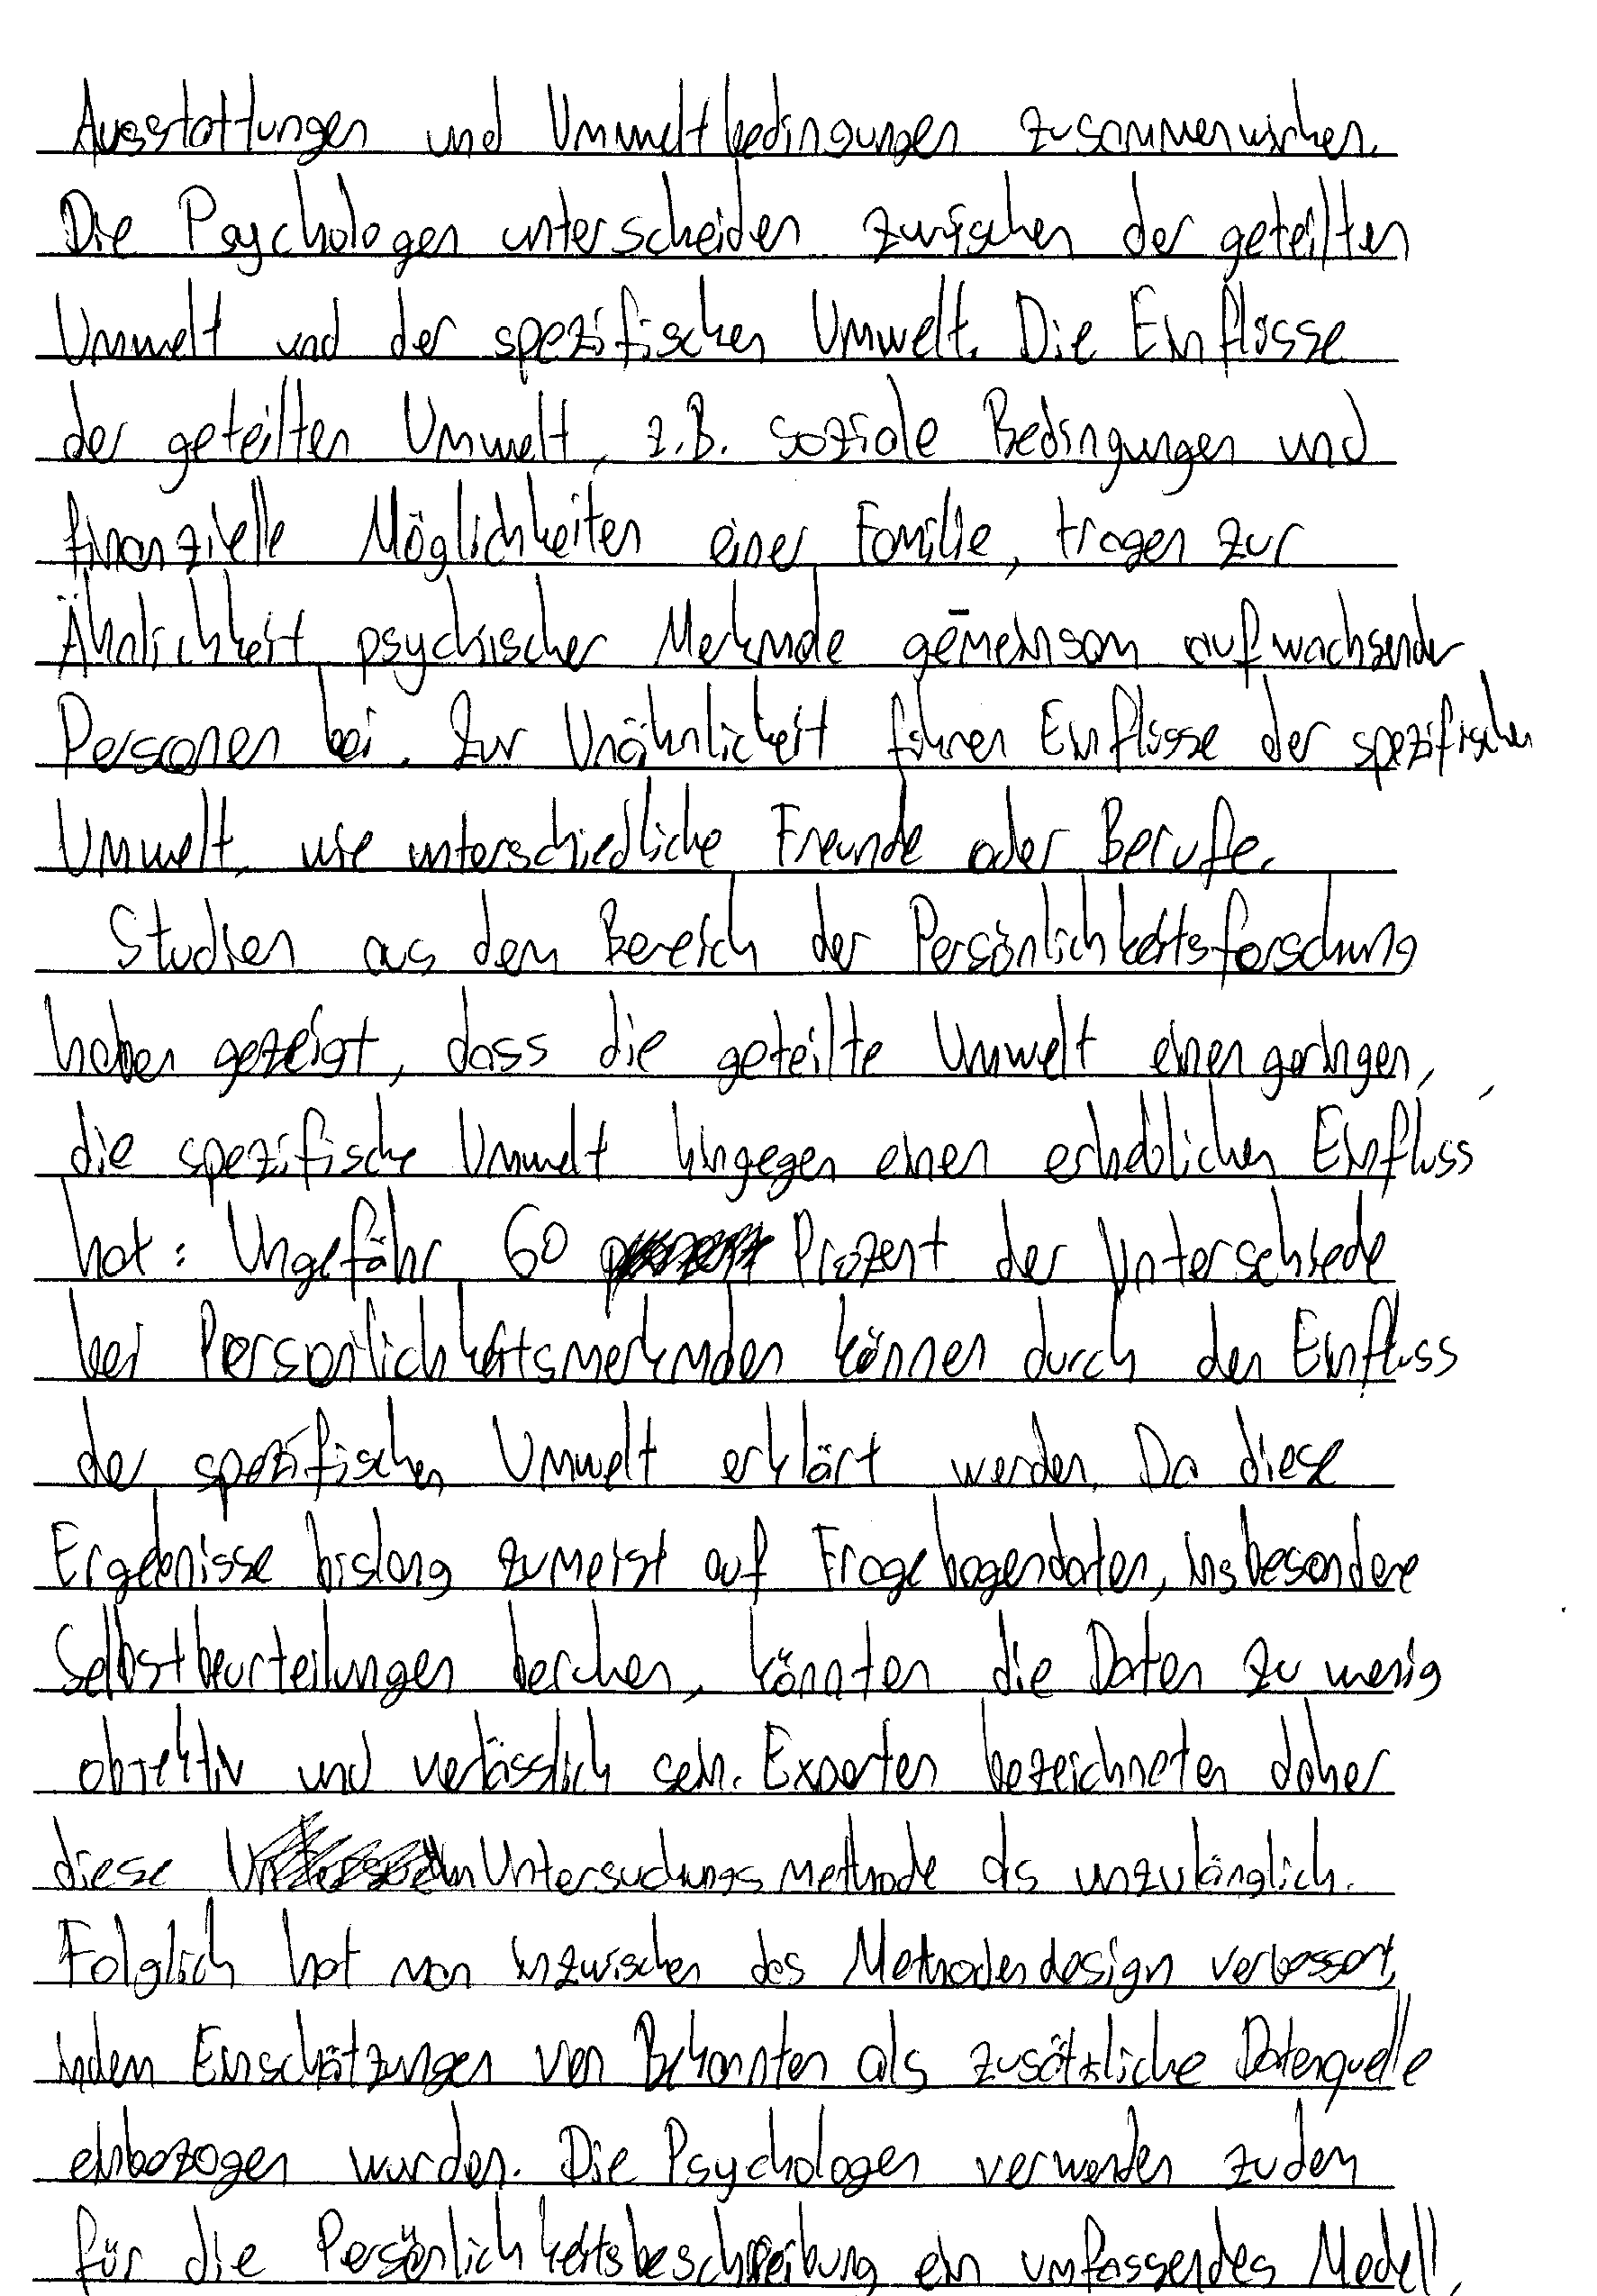 Ausstattungen und Umweltbedingungen zusammenwirken.
Die Psychologen unterscheiden zwischen der geteilten
Umwelt und der spezifischen Umwelt. Die Einflüsse
der geteilten Umwelt, z.B. soziale Bedingungen und
finanzielle Möglichkeiten einer Familie, tragen zur
Ähnlichkeit psychischer Merkmale gemeinsam aufwachsender
Personen bei. Zur Unähnlichkeit führen Einflüsse der spezifischen
Umwelt, wie unterschiedliche Freunde oder Berufe.
Studien aus dem Bereich der Persönlichkeitsforschung
haben gezeigt, dass die geteilte Umwelt einen geringen,
die spezifische Umwelt hingegen einen erheblichen Einfluss
hat: Ungefähr 60 Prozent der Unterschiede
bei Persönlichkeitsmerkmalen können durch den Einfluss
der spezifischen Umwelt erklärt werden. Da diese
Ergebnisse bislang zumeist auf Fragebogendaten, insbesondere
Selbstbeurteilungen beruhen, könnten die Daten zu wenig
objektiv und verlässlich sein. Experten bezeichneten daher
diese Untersuchungsmethode als unzulänglich.
Folglich hat man inzwischen das Methodendesign verbessert,
indem Einschätzungen von Bekannten als zusätzliche Datenquelle
einbezogen wurden. Die Psychologen verwenden zudem
für die Persönlichkeitsbeschreibung ein umfassendes Modell,